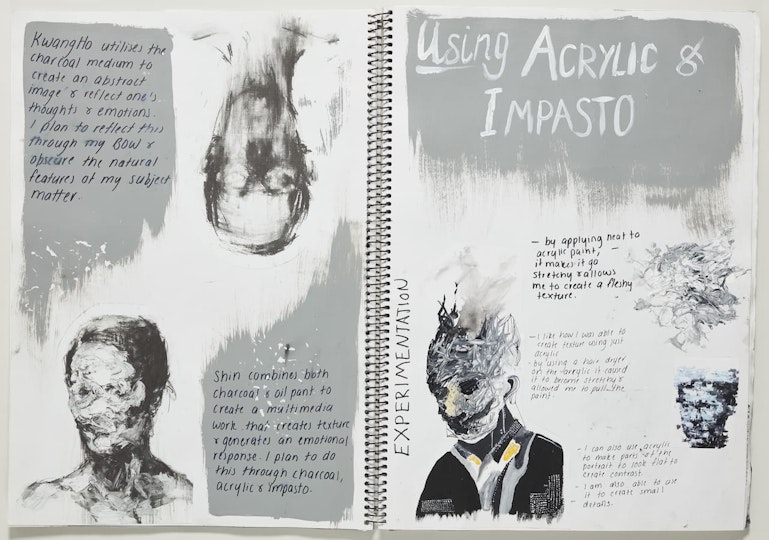 KwangHo utilises the
charcoal medium to
create an abstract
image & reflect one's
thoughts & emotions.
I plan to reflect this
through my BOW &
obscure the natural
features of my subject
matter.
Shin combines both
charcoal & oil pant to
create a multimedia
work that creates texture
& generates an emotional
response. I plan to do
this through charcoal,
acrylic & impasto.
Using Acrylic &
Impasto
EXPERIMENTATION
- by applying heat to
acrylic paint,
it makes it go
stretchy & allows
me to create a fleshy
texture.
- I like how I was able to
create texture using just
acrylic
- by using a hair dryer
on the acrylic it caused
it to become stretchy &
allowed me to pull the
paint.
- I can also use acrylic
to make parts of the
portrait to look flat to
create contrast.
- I am also able to use
it to create small
details.